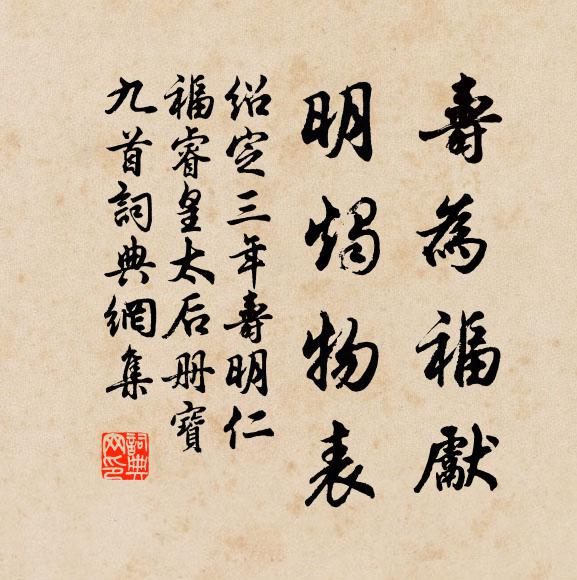 壽為福獻
明燭物表
紹定三年壽明仁
福睿皇太后册寶
九首詞典網集
詞典
网印